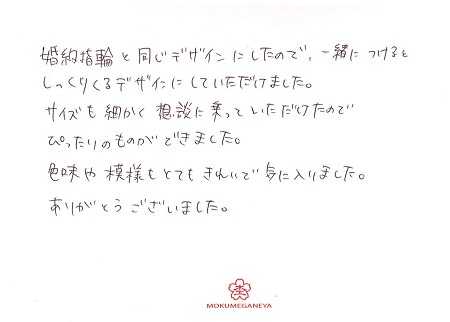 婚約指輪と同じデザインにしたので、一緒につけると
しっくりくるデザインにしていただけました。
サイズも細かく相談に乗っていただけたので
ぴったりのものができました。
色味や模様もとてもきれいで気に入りました。
ありがとうございました。
MOKUMEGANEYA